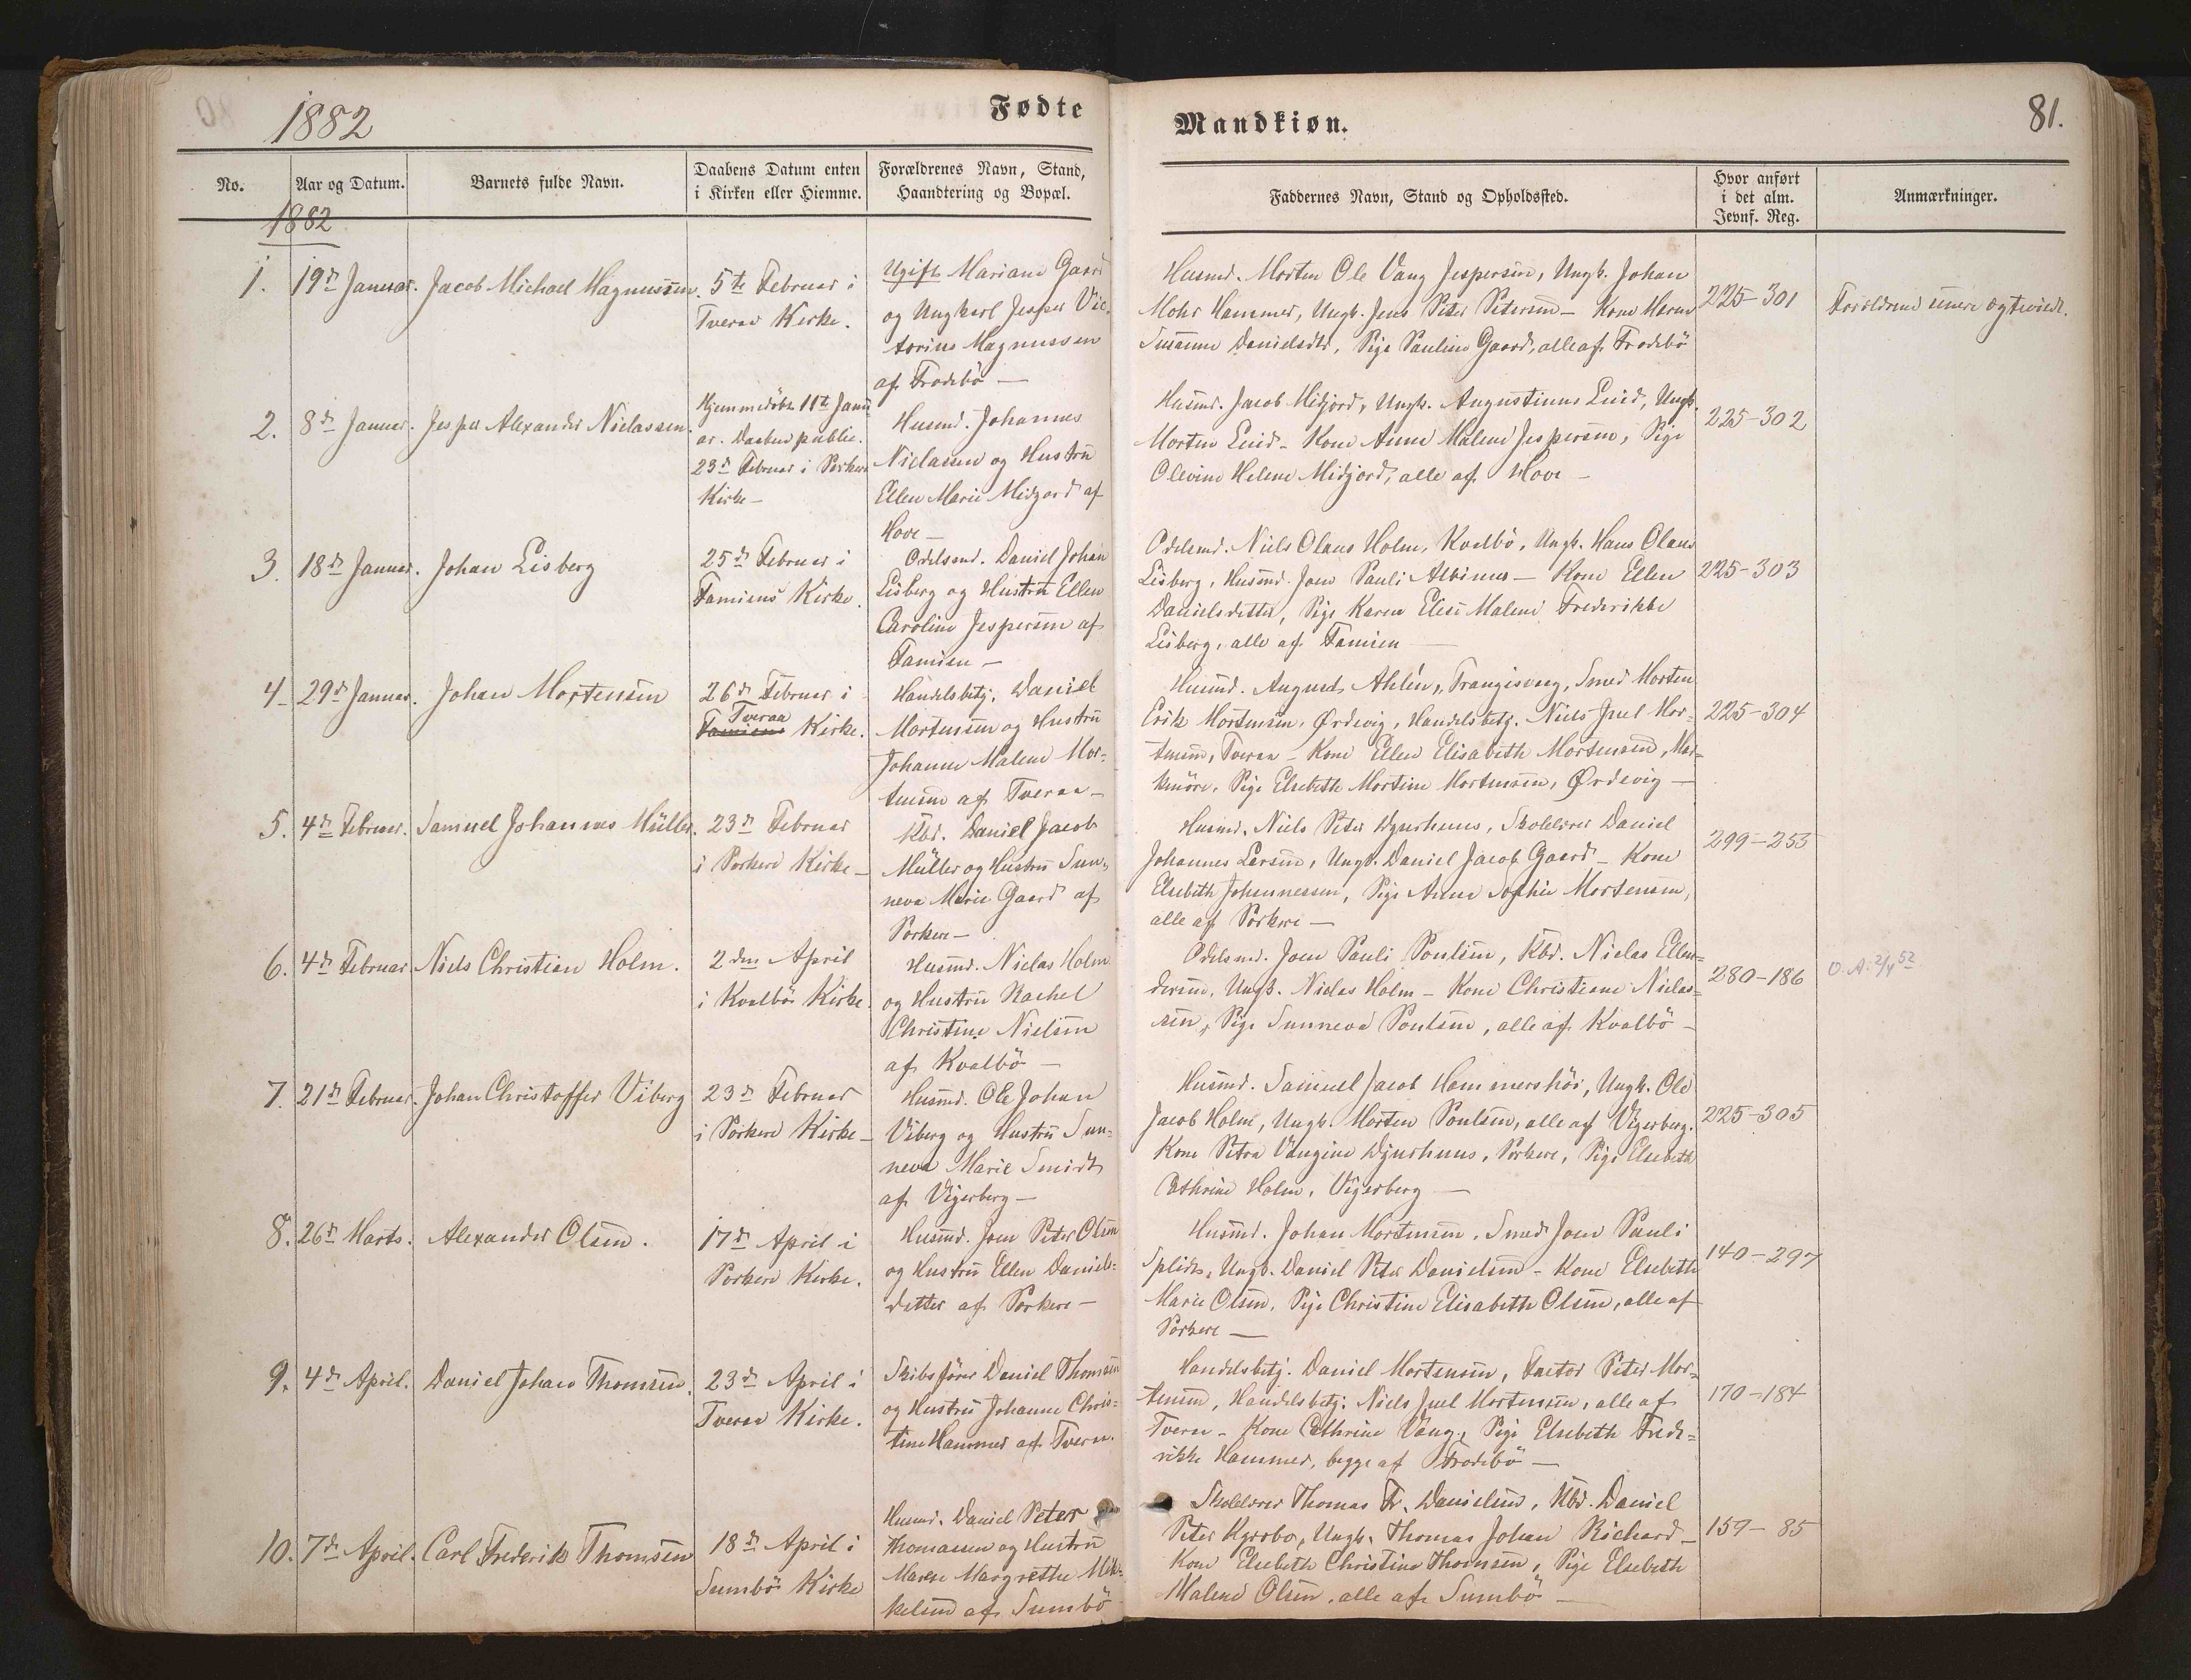 1882
Fødte
Mandkiøn.
81.
No.
Aar og Datum.
Barnets fulde Navn.
Daabens Datum enten
i Kirken eller Hiemme.
Forældrenes Navn, Stand,
Haandtering og Bopæl.
Faddernes Navn, Stand og Opholdssted.
Hvor anført
i det alm.
Jevnf. Reg.
Anmærkninger.
1882
1. 19de Januar. Jacob Michael Magnussen.
5te Februar i
Tveraa Kirke.
Ugift Mariane Gaard
og Ungkarl Jesper Vic-
torius Magnussen
af Frodebö —
Husmd. Morten Ole Vang Jespersen, Ungk. Johan
Mohr Hammer, Ungk. Jens Peter Petersen — Kone Maren
Susanne Danielsdtr, Pige Pauline Gaard, alle af Frodebö
225-301
Forældrene senere ægteviede.
2. 8de Januar. Jesper Alexander Niclassen.
Hjemmedöbt 11te Janu
ar. Daaben public.
23de Februar i Porkere
Kirke —
Husmd. Johannes
Niclassen og Hustru
Ellen Marie Midjord af
Hove —
Husmd. Jacob Midjord, Ungk. Augustinus Luid, Ungk.
Morten Luid — Kone Anne Malene Jespersen, Pige
Olevine Helene Midjord, alle af Hove —
225-302
3. 18de Januar. Johan Lisberg
25de Februar i
Famiens Kirke.
Odelsmd. Daniel Johan
Lisberg og Hustru Ellen
Caroline Jespersen af
Famien —
Odelsmd. Niels Olaus Holm, Kvalbö, Ungk. Hans Olaus
Lisberg, Husmd. Joen Pauli Albinus — Kone Ellen
Danielsdatter, Pige Karen Elise Malene Frederikke
Lisberg, alle af Famien —
225-303
4 — 29de Januar. Johan Mortensen
26de Februar i
Tveraa
Famiens Kirke.
Handelsbetj. Daniel
Mortensen og Hustru
Johanne Malene Mor-
tensen af Tveraa —
Husmd. August Ahlén, Trangisvaag, Smed Morten
Erik Mortensen, Ørdevig, Handelsbetj. Niels Juel Mor-
tensen, Tveraa — Kone Ellen Elisabeth Mortensen,
Pige Elsebeth Mortine Mortensen, Ørdevig —
225-304
5. 4de Februar. Samuel Johannes Müller.
23de Februar
i Porkere Kirke —
Kbd. Daniel Jacob
Müller og Hustru Sun-
neva Marie Gaard af
Porkere —
Husmd. Niels Peter Djurhuus, Skolelærer Daniel
Johannes Larsen, Ungk. Daniel Jacob Gaard — Kone
Elsebeth Johannessen, Pige Anne Sophie Mortensen,
alle af Porkere —
299-253
6. 4de Februar. Niels Christian Holm.
2den April
i Kvalbö Kirke.
Husmd. Niclas Holm
og Hustru Rachel
Christine Nielsen
af Kvalbö —
Odelsmd. Joen Pauli Poulsen, Kbd. Niclas Ellen-
dersen, Ungk. Niclas Holm — Kone Christiane Niclas-
sen, Pige Sunneva Poulsen, alle af Kvalbö —
280-186
O. A. 2/4 52
7. 21de Februar. Johan Christoffer Viberg
23de Februar
i Porkere Kirke —
Husmd. Ole Johan
Viberg og Hustru Sun-
neva Marie Smidt
af Vigerberg —
Husmd. Samuel Jacob Hammershöi, Ungk. Ole
Jacob Holm, Ungk. Morten Poulsen, alle af Vigerberg.
Kone Petra Vaugine Djurhuus, Porkere, Pige Elsebeth
Cathrine Holm, Vigerberg —
225-305
8. 26de Marts. Alexander Olsen.
17de April i
Porkere Kirke.
Husmd. Joen Peter Olsen
og Hustru Ellen Daniels-
datter af Porkere —
Husmd. Johan Mortensen, Smed Joen Pauli
Splidt, Ungk. Daniel Peter Danielsen — Kone Elsebeth
Marie Olsen, Pige Christine Elisabeth Olsen, alle af
Porkere —
140-297
9. 4de April. Daniel Johan Thomsen.
23de April i
Tveraa Kirke.
Skibsförer Daniel Thomsen
og Hustru Johanne Chris-
tine Hammer af Tveraa.
Handelsbetj. Daniel Mortensen, Factor Peter Mor-
tensen, Handelsbetj. Niels Juel Mortensen, alle af
Tveraa — Kone Cathrine Vang, Pige Elsebeth Frede-
rikke Hammer, begge af Frodebö —
170-184
10. 7de April. Carl Frederik Thomsen
18de April i
Sumbö Kirke
Husmd. Daniel Peter
Thomassen og Hustru
Maren Margrethe Mik-
kelsen af Sumbö
Skolelærer Thomas Fr. Danielsen, Kbd. Daniel
Peter Kjærbo, Ungk. Thomas Johan Richard —
Kone Elsebeth Christine Thomsen, Pige Elsebeth
Malene Olsen, alle af Sumbö —
159-85